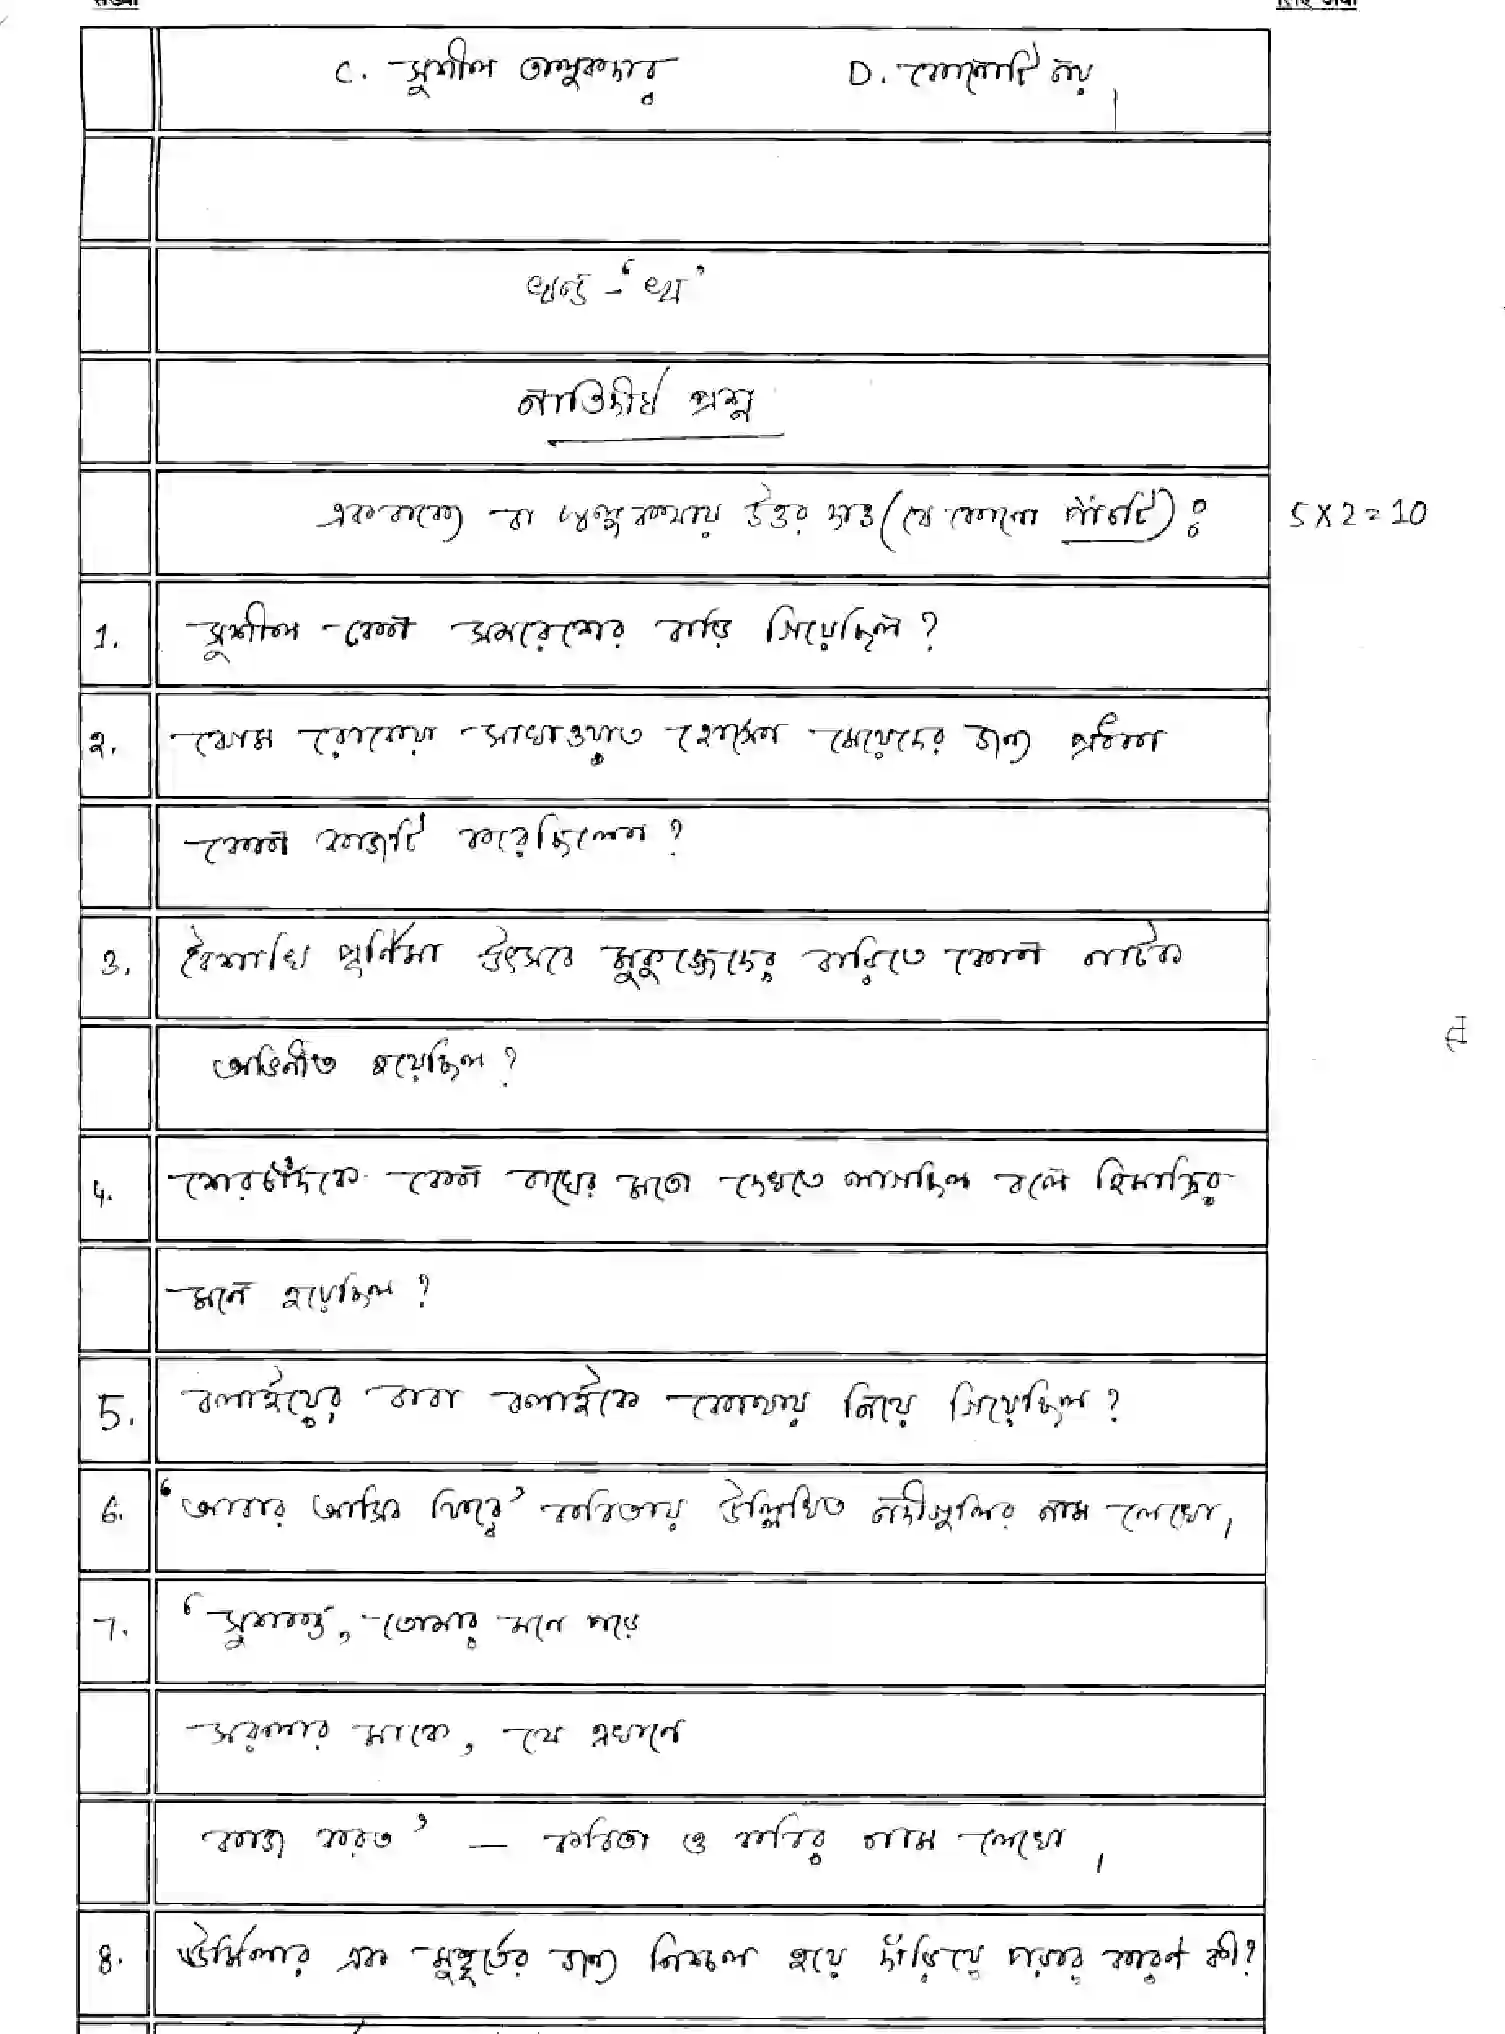 C. সুশীল তালুকদার D. কোনোটি নয়।
খণ্ড - ‘খ’
নাতিদীর্ঘ প্রশ্ন
একবাক্যে বা স্বল্পকথায় উত্তর দাও (যে কোনো পাঁচটি) : 5 X 2 = 10
1. সুশীল কেন অমরেশের বাড়ি গিয়েছিল ?
2. কোম রোকেয়া সাখাওয়াত হোসেন মেয়েদের জন্য প্রথম
কোন কাজটি করেছিলেন ?
3. বৈশাখি পূর্ণিমা উৎসবে মুকুজ্জেদের বারিতে কোন নাটক
অভিনীত হয়েছিল ?
4. শেরচাঁদকে কেন বাঘের মতো দেখতে লাগছিল বলে হিমাদ্রির
মনে হয়েছিল ?
5. বলাইয়ের বাবা বলাইকে কোথায় নিয়ে গিয়েছিল ?
6. ‘আবার আসিব ফিরে’ কবিতায় উল্লিখিত নদীগুলির নাম লেখো।
7. ‘সুপর্ণা, তোমার মনে পড়ে
সরলার মাকে, যে এখানে
কাজ করত’ — কবিতা ও কবির নাম লেখো।
8. ঊর্মিলার এক মুহূর্তের জন্য নিশ্চল হয়ে দাঁড়িয়ে পরার কারণ কী?